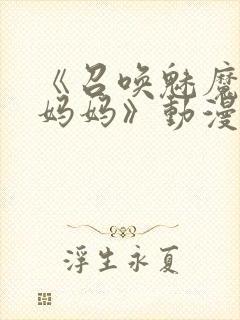 《召唤魅魔
妈妈》動漫
浮生永夏